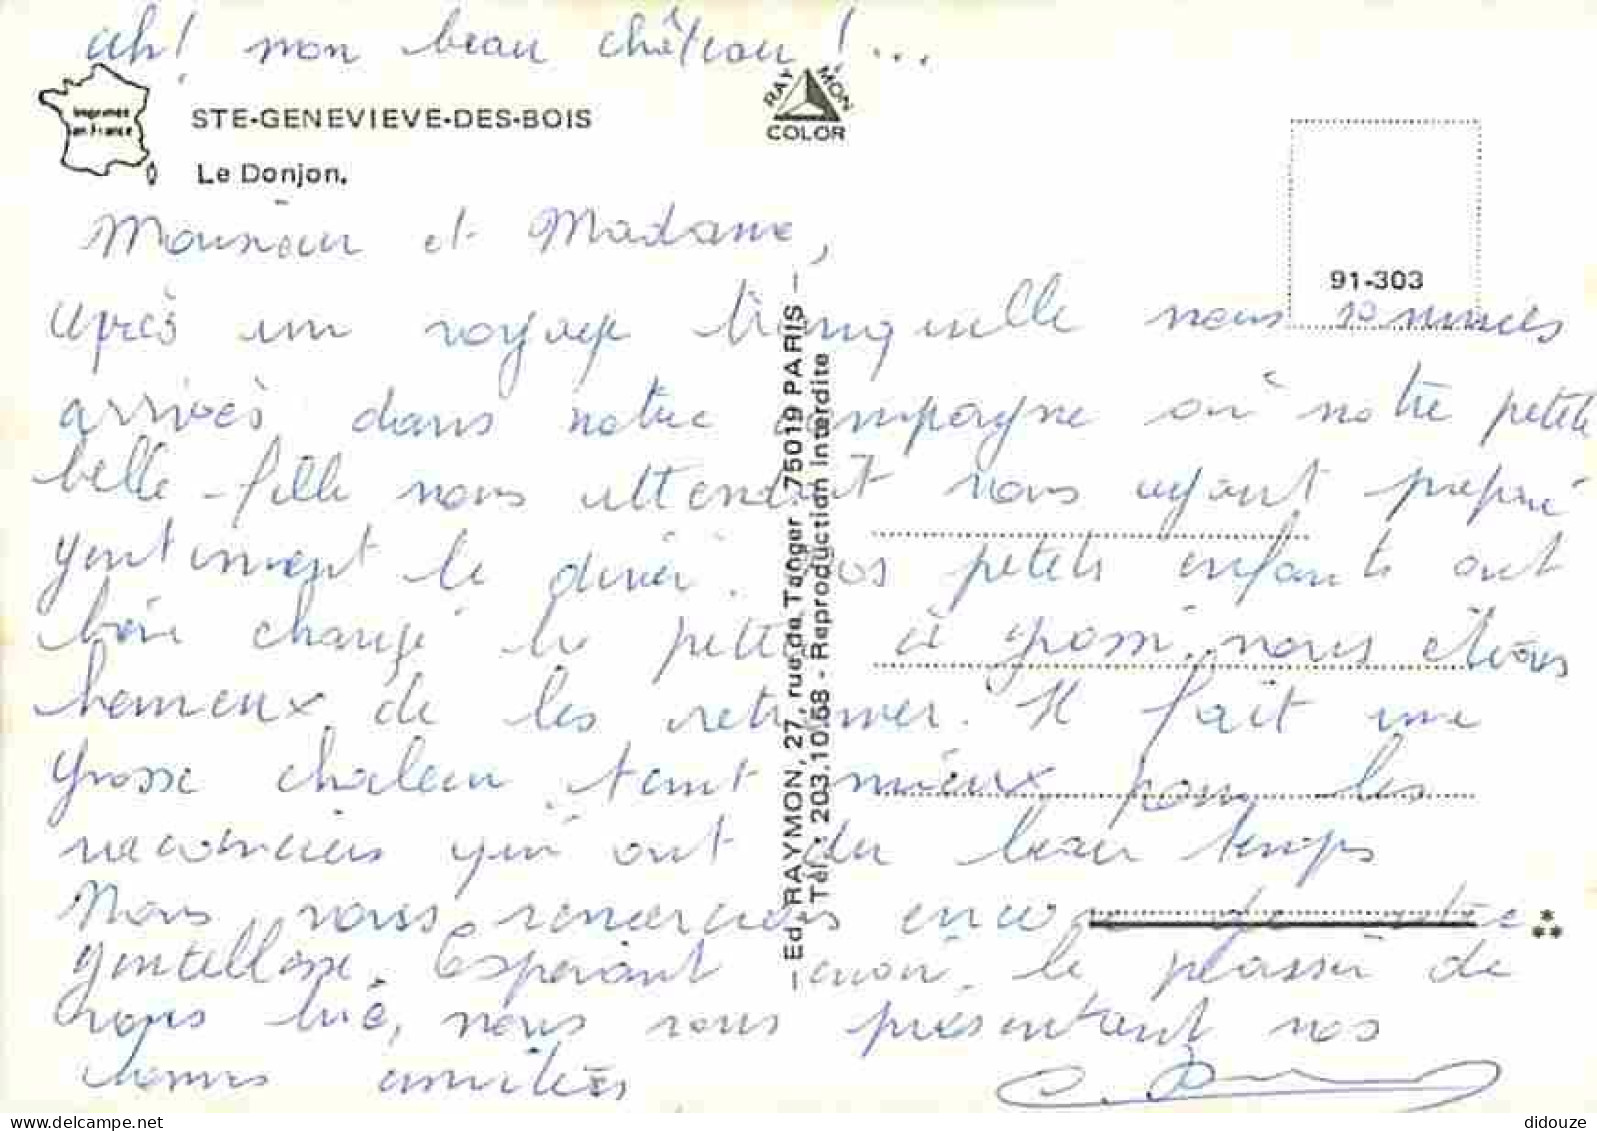 ah! mon beau château !...
RAYMON
COLOR
Imprimée
en France
STE-GENEVIEVE-DES-BOIS
Le Donjon.
91-303
Monsieur et Madame,
après un voyage tranquille nous sommes
arrivés dans notre campagne où notre petite
belle-fille nous attendait nous ayant préparé
gentiment le diner. Nos petits enfants ont
bien changé la petite à grossi, nous étions
heureux de les retrouver. Il fait une
grosse chaleur, tant mieux pour les
vacanciers qui ont du beau temps
Nous vous remercions encore de votre
gentillesse. Espérant avoir le plaisir de
vous lire, nous vous présentant nos
bonnes amitiés
Ed. RAYMON, 27, rue de Tanger - 75019 PARIS -
Tél. : 203.10.68 - Reproduction Interdite
delcampe.net
didouze